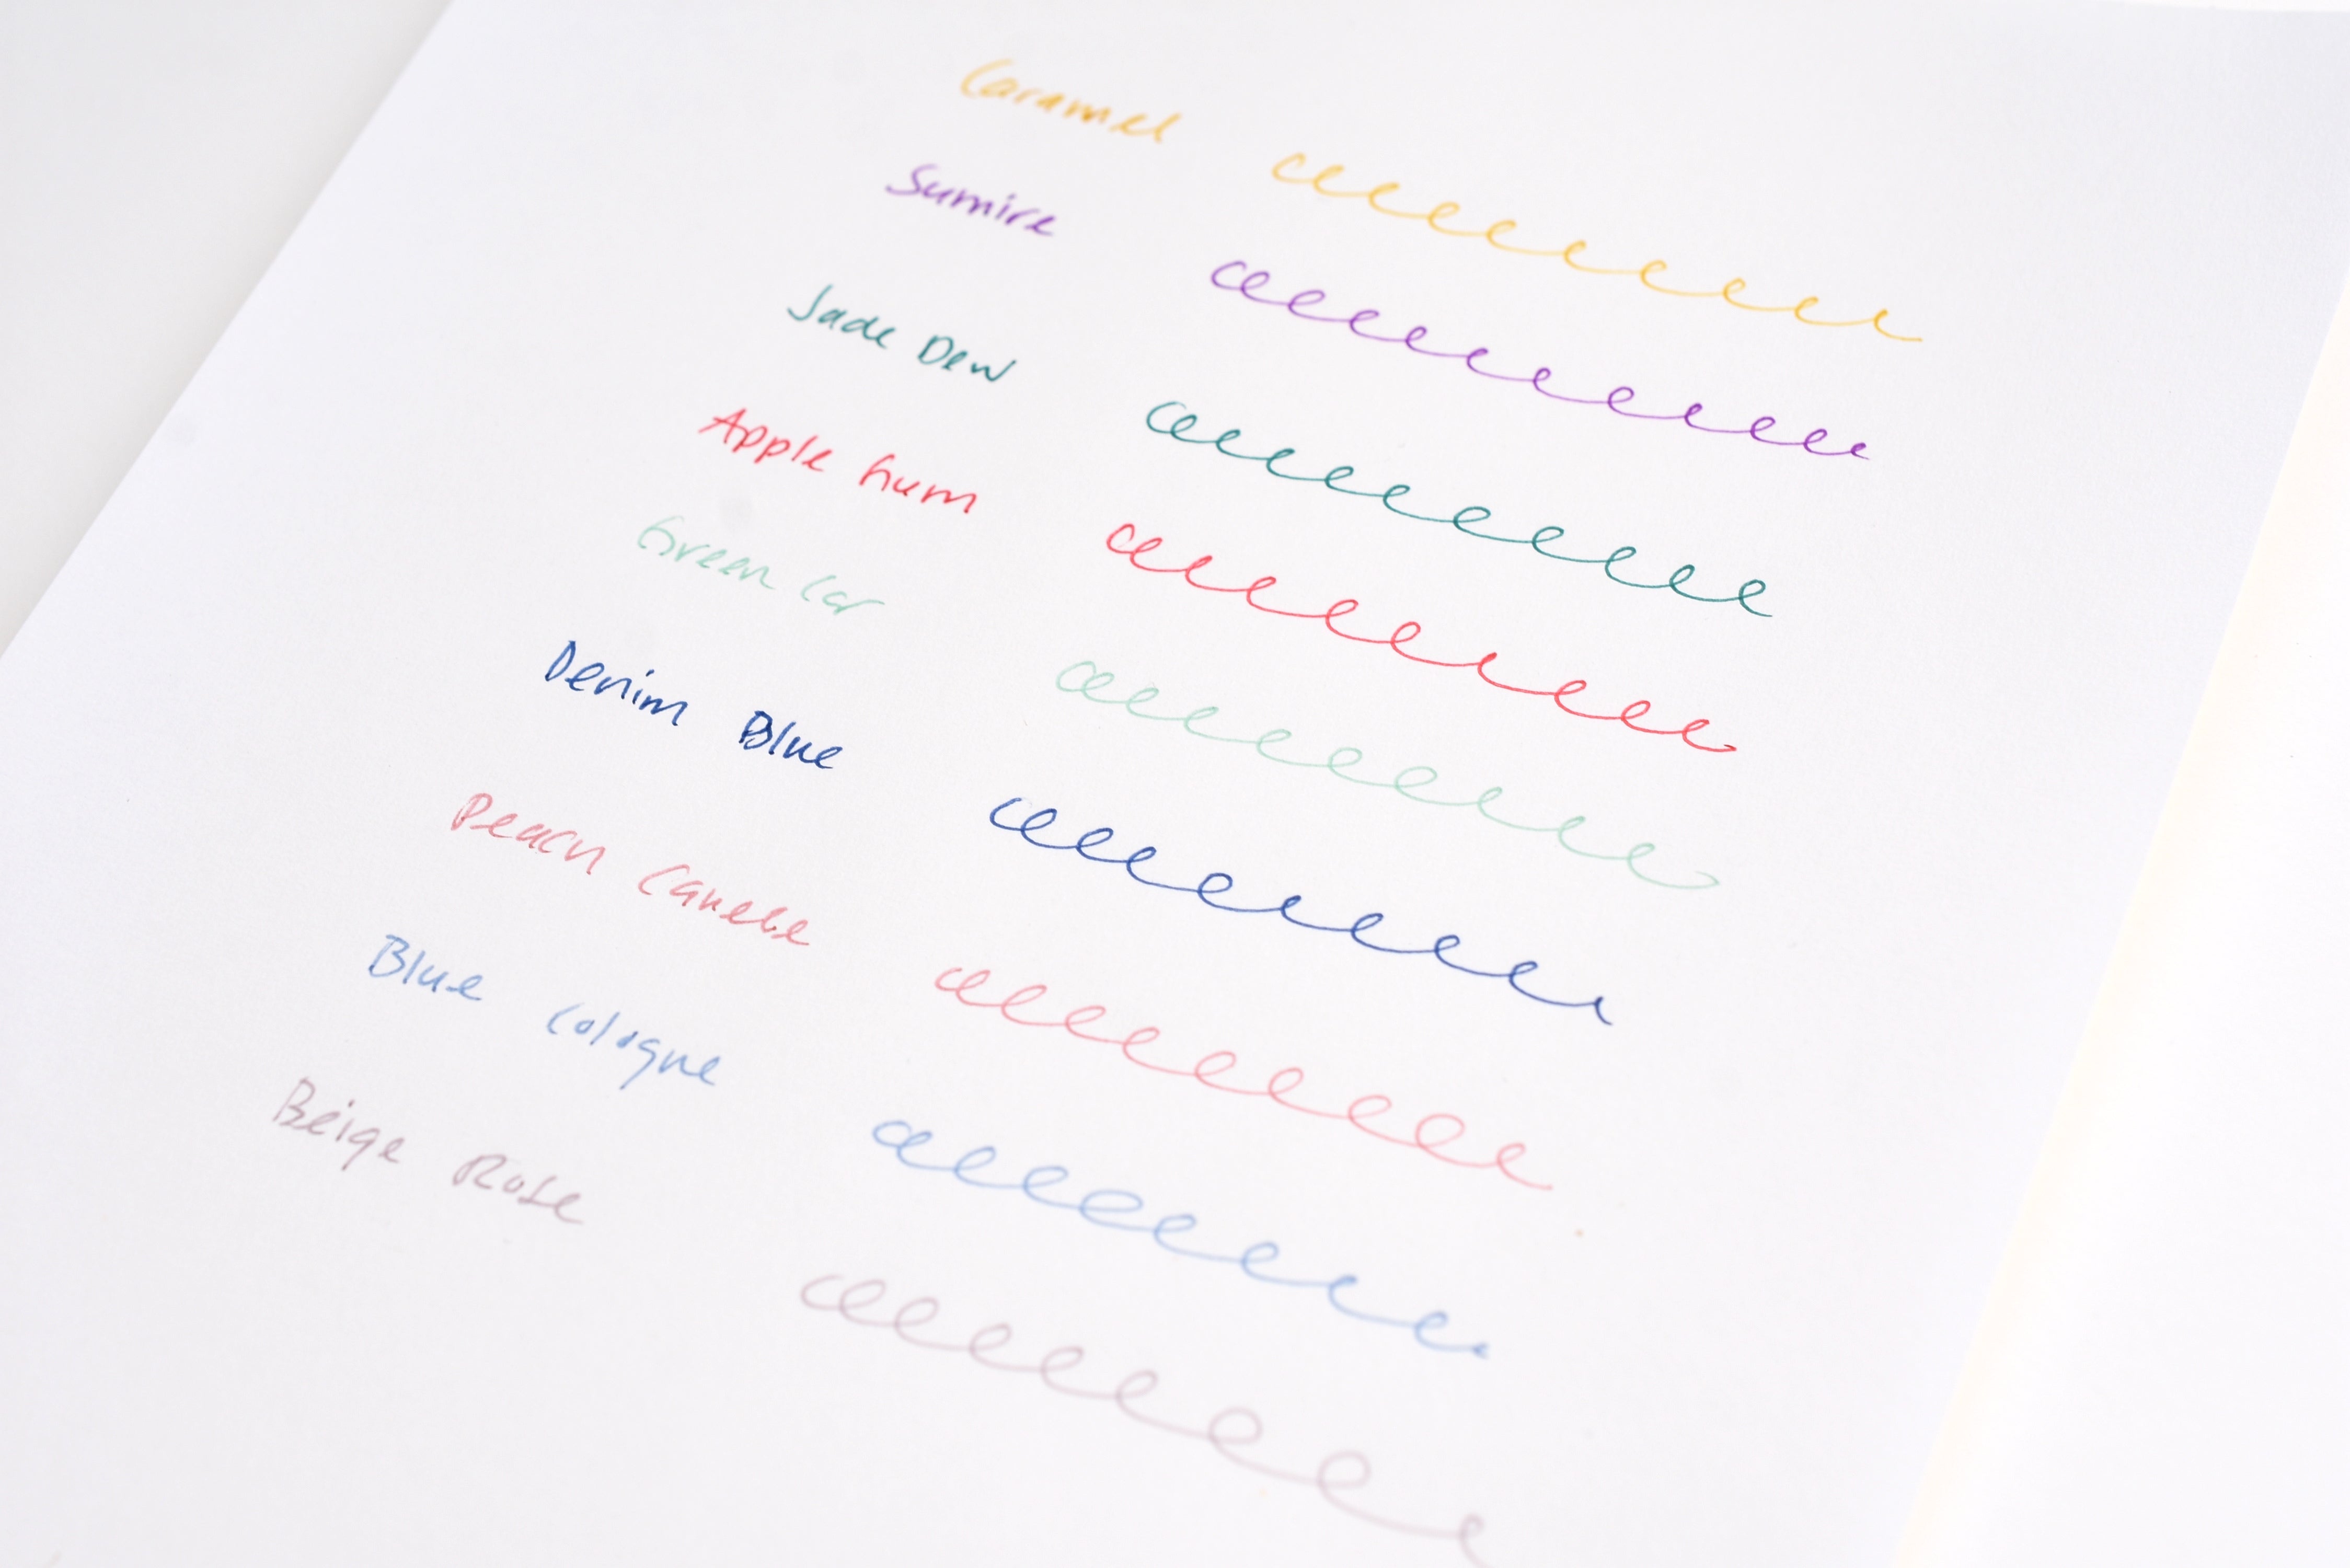 Caramel
Sumire
Jade Dew
Apple Gum
Green Car
Denim Blue
Peach Canele
Blue Cologne
Beige Rose